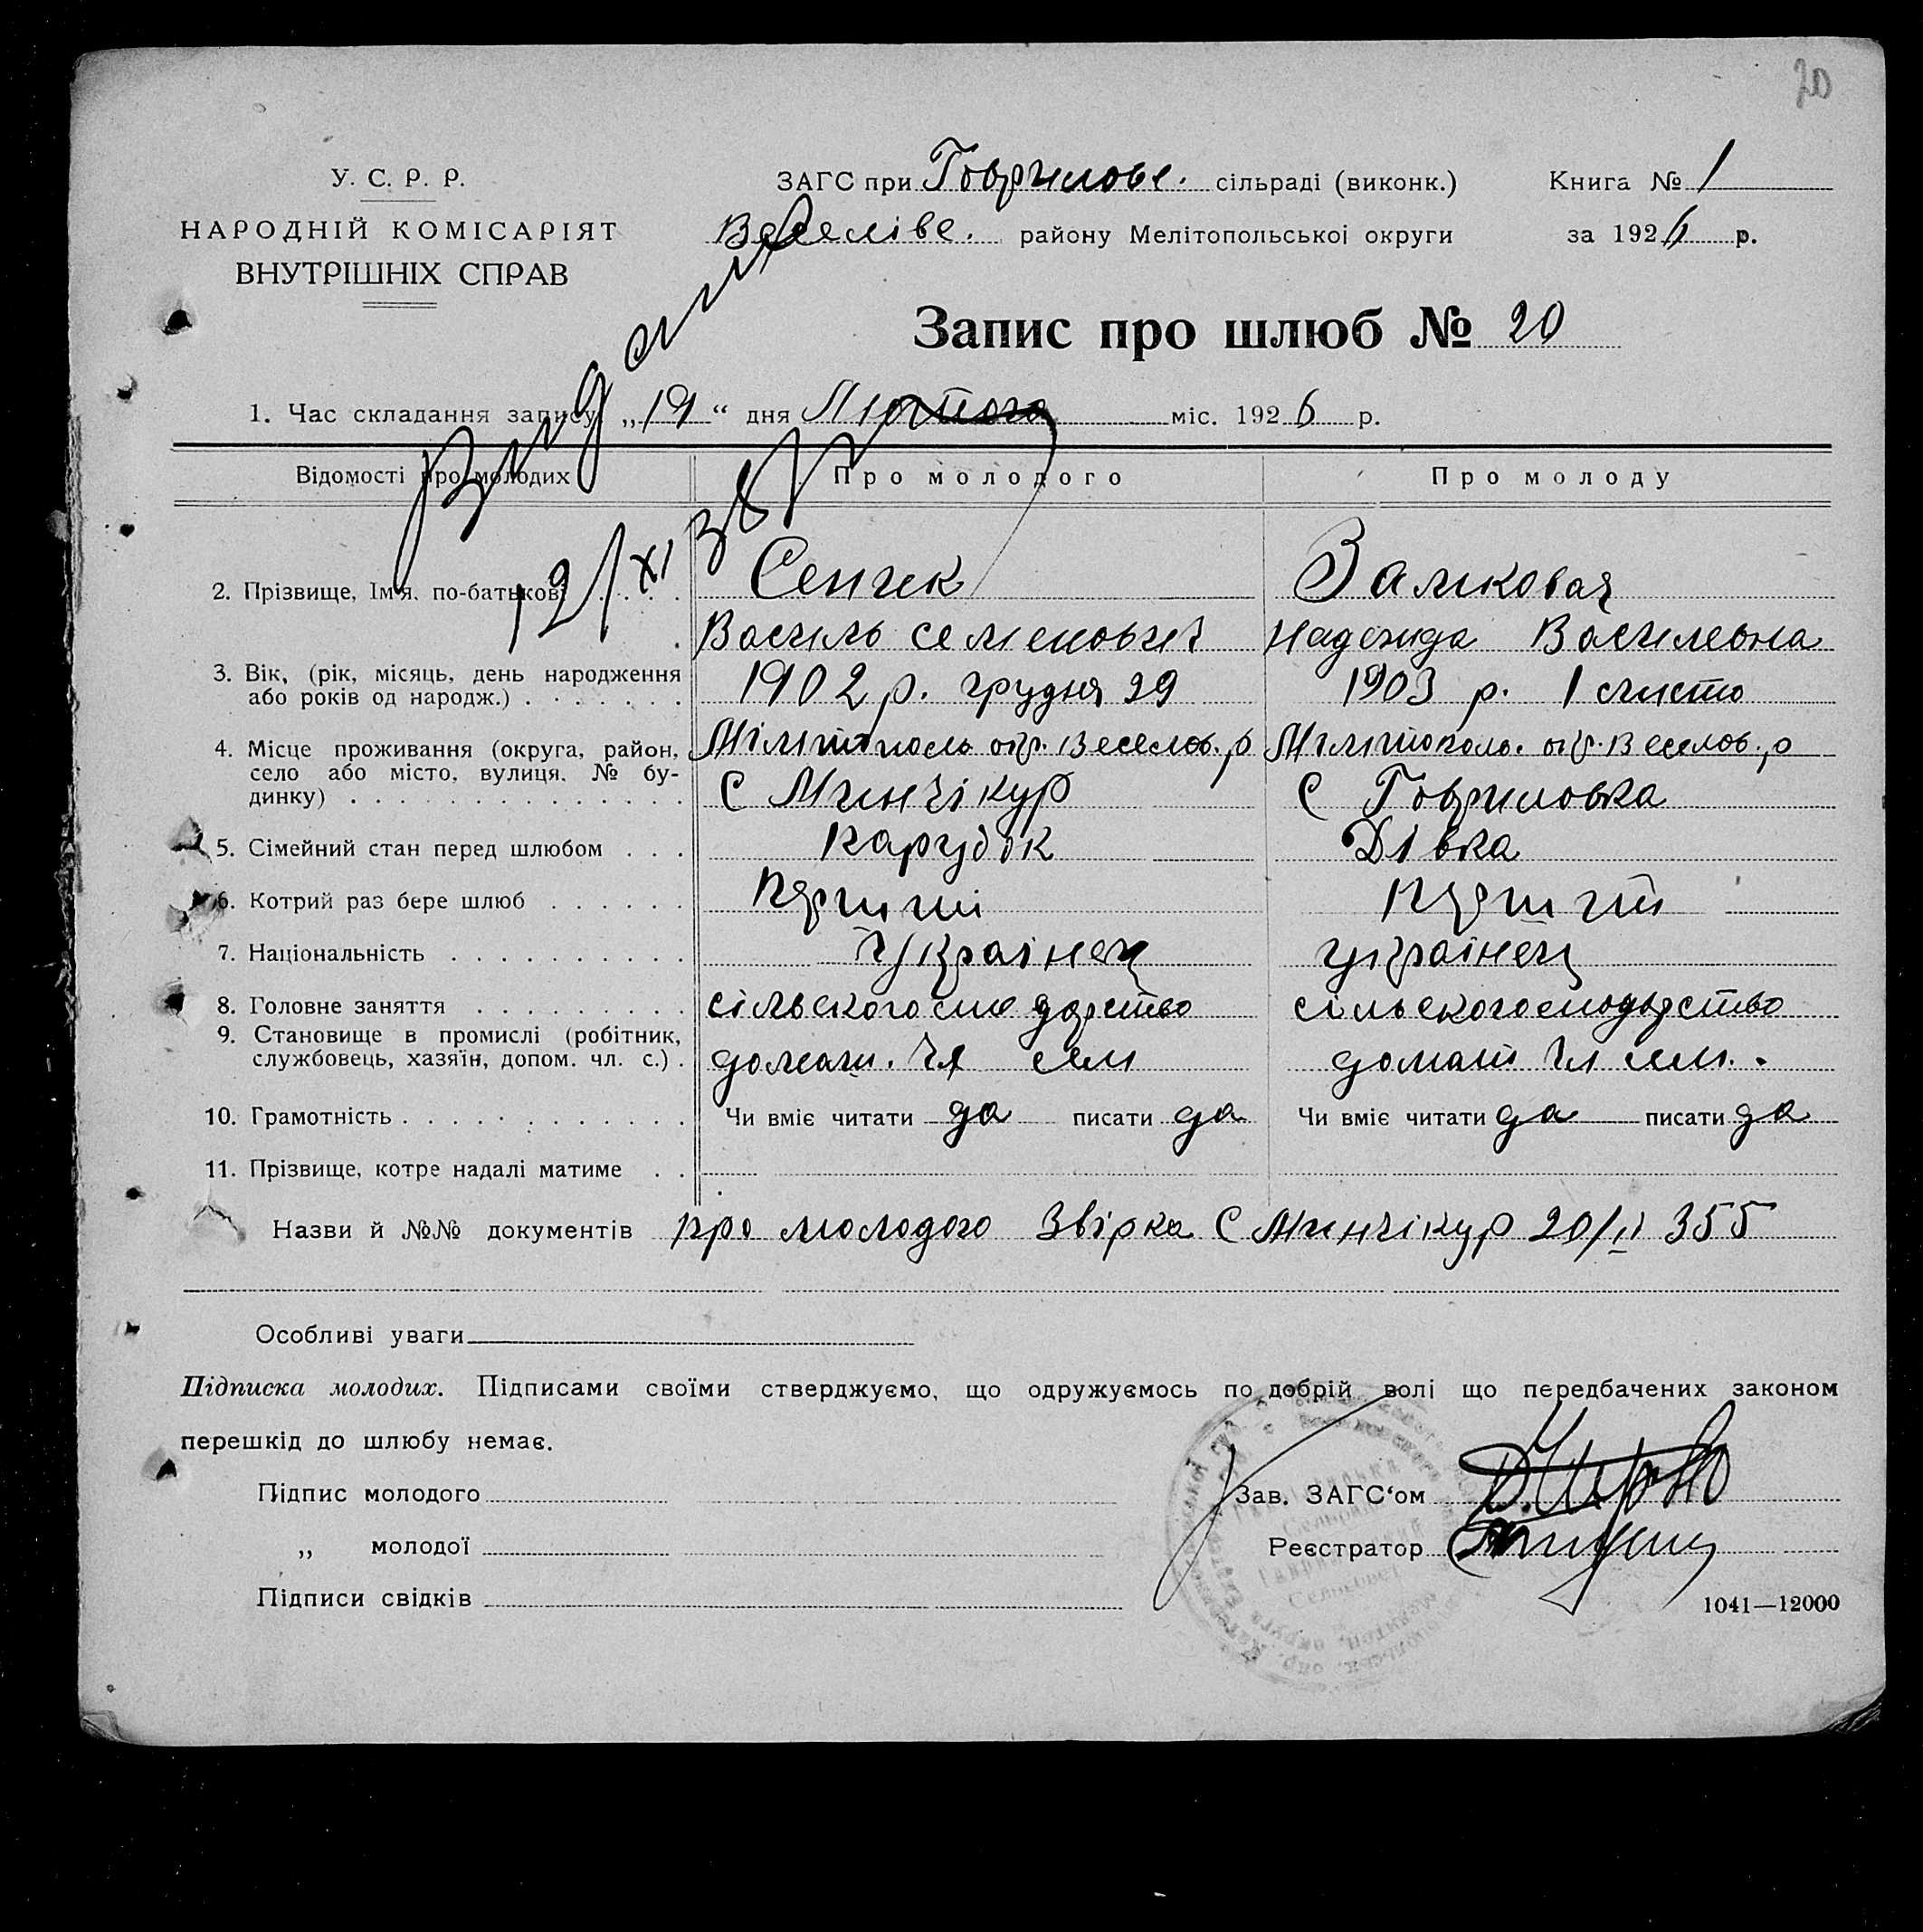 20
У. С. Р. Р.
НАРОДНІЙ КОМІСАРІЯТ
ВНУТРІШНІХ СПРАВ
ЗАГС при Гаврилове. сільраді (виконк.) Книга № 1
Веселіве. району Мелітопольської округи за 1926 р.
Запис про шлюб № 20
1. Час складання запису „19“ дня Лютого міс. 1926 р.
Відомості про молодих Про молодого Про молоду
21/XI
2. Прізвище, Ім'я, по-батькові Сенчек Замковая
Василь Семенович Надежда Васильвна
3. Вік, (рік, місяць, день народження 1902 р. грудня 29 1903 р. 1 листо
або років од народж.)
4. Місце проживання (округа, район, Мілитополь окр. Веселов. р Мілитополь. окр. Веселов. р
село або місто, вулиця, № бу-
динку) С Минчікур С Гавриловка
5. Сімейний стан перед шлюбом парубок Дівка
6. Котрий раз бере шлюб
7. Національність українец українец
8. Головне заняття сільскогосподарство сільскогосподарство
9. Становище в промислі (робітник,
службовець, хазяїн, допом. чл. с.) помаш. чл сем помаш чл сем.
10. Грамотність Чи вміє читати да писати да Чи вміє читати да писати да
11. Прізвище, котре надалі матиме
Назви й №№ документів про молодого Звірка С Минчікур 20/II 355
Особливі уваги
Підписка молодих. Підписами своїми стверджуємо, що одружуємось по добрій волі що передбачених законом
перешкід до шлюбу немає.
Підпис молодого Зав. ЗАГС'ом
„ молодої Реєстратор
Підписи свідків
1041—12000